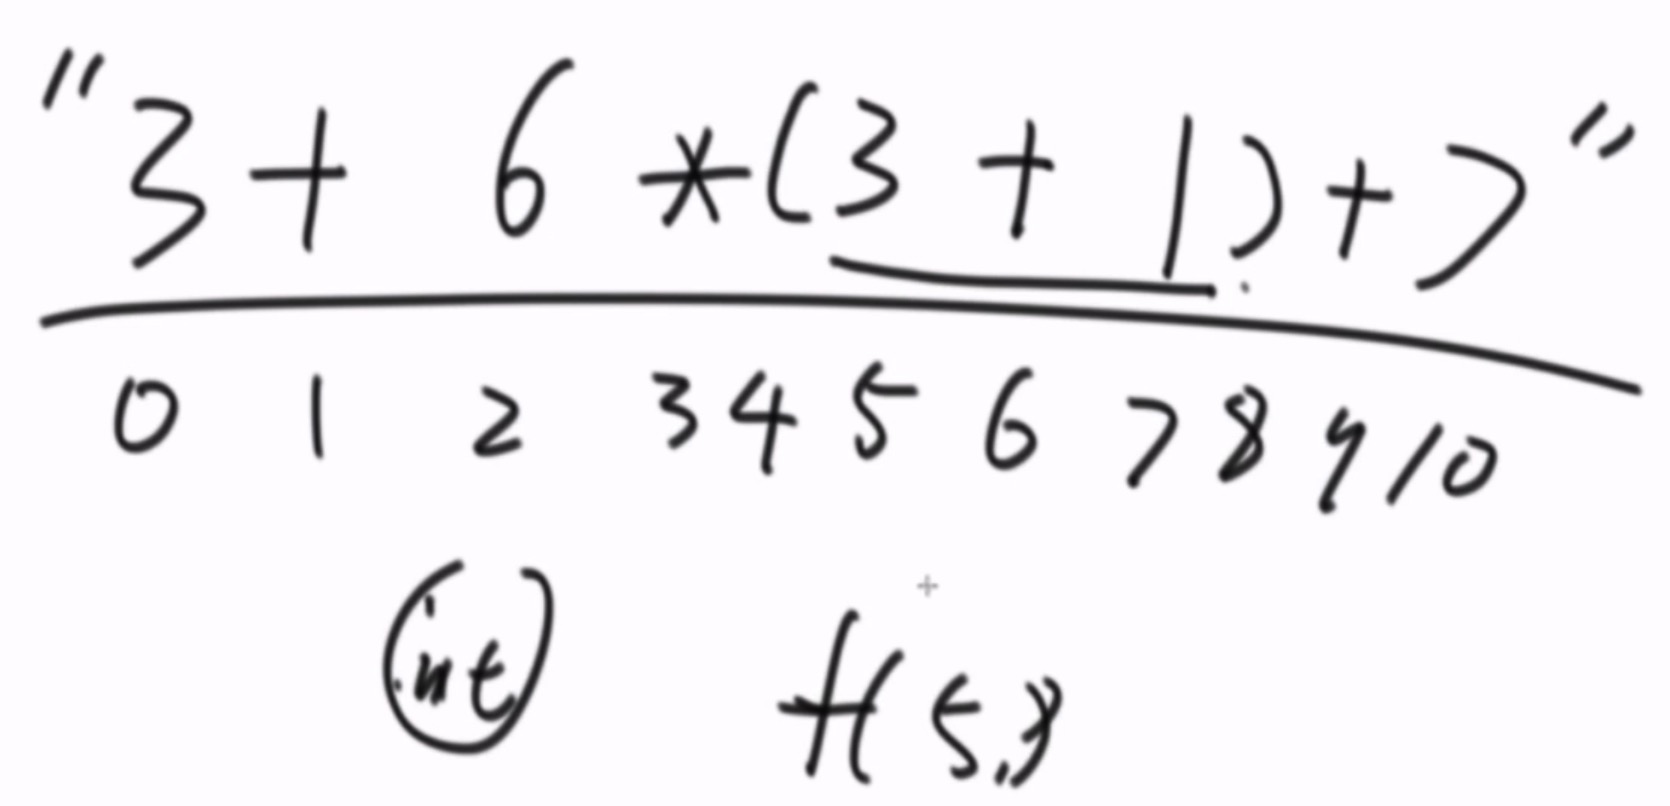 "3+ 6 *(3 + 1)+7"
0 1 2 3 4 5 6 7 8 9 10
int f(5,)